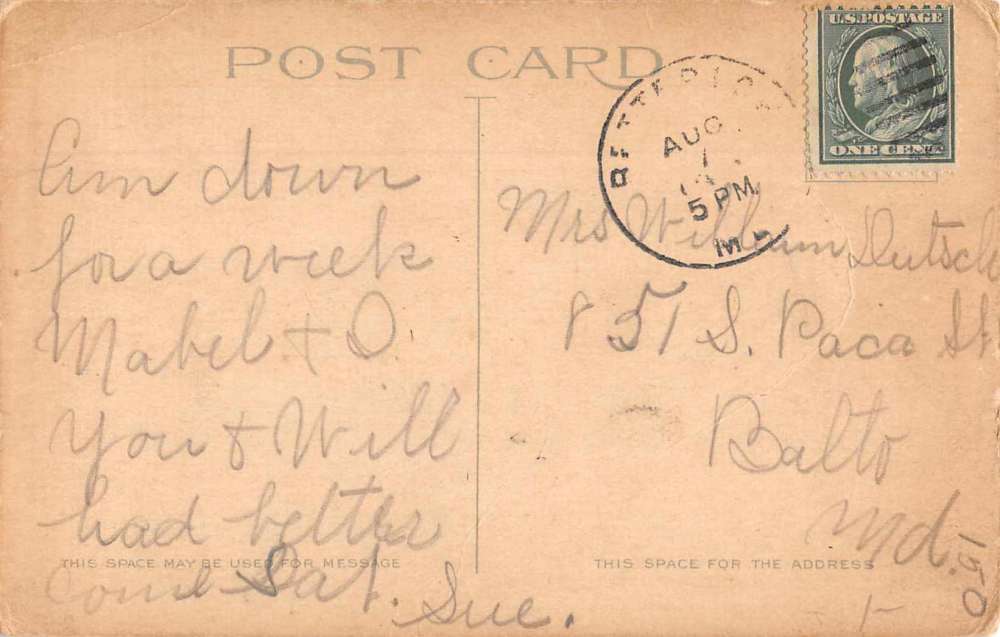 POST CARD
U.S. POSTAGE
ONE CENT
BETTERTON
AUG
7
5 PM
MD
Am down
for a week
Mabel + D.
You & Will
had better
come Sat. Sue.
Mrs William Dutsch
851 S. Paca St
Balto
Md.
THIS SPACE MAY BE USED FOR MESSAGE
THIS SPACE FOR THE ADDRESS